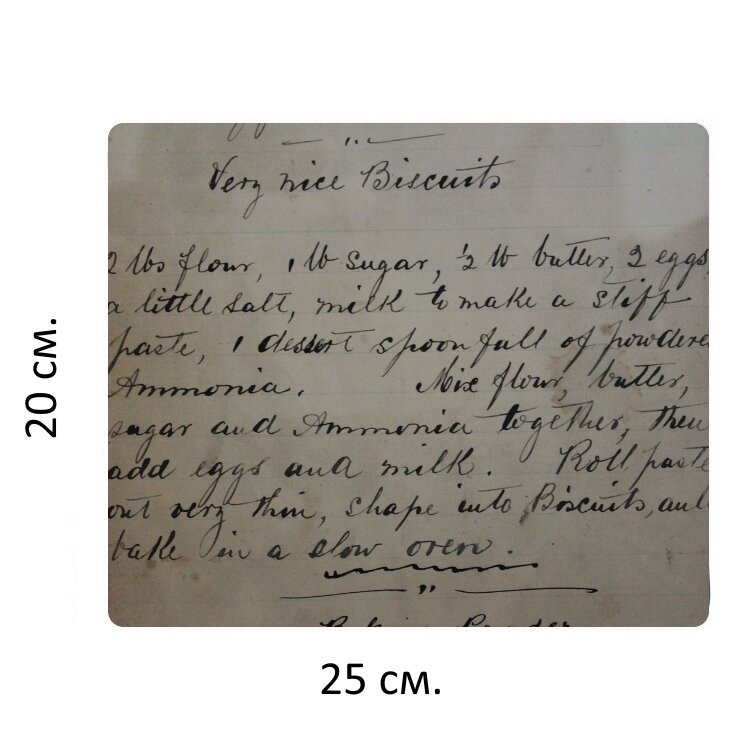 Very nice Biscuits
2 lbs flour, 1 lb sugar, ½ lb butter, 2 eggs,
a little salt, milk to make a stiff
paste, 1 dessert spoon full of powdered
Ammonia. Mix flour, butter,
sugar and Ammonia together, then
add eggs and milk. Roll paste
out very thin, shape into Biscuits, and
bake in a slow oven.
20 см.
25 см.